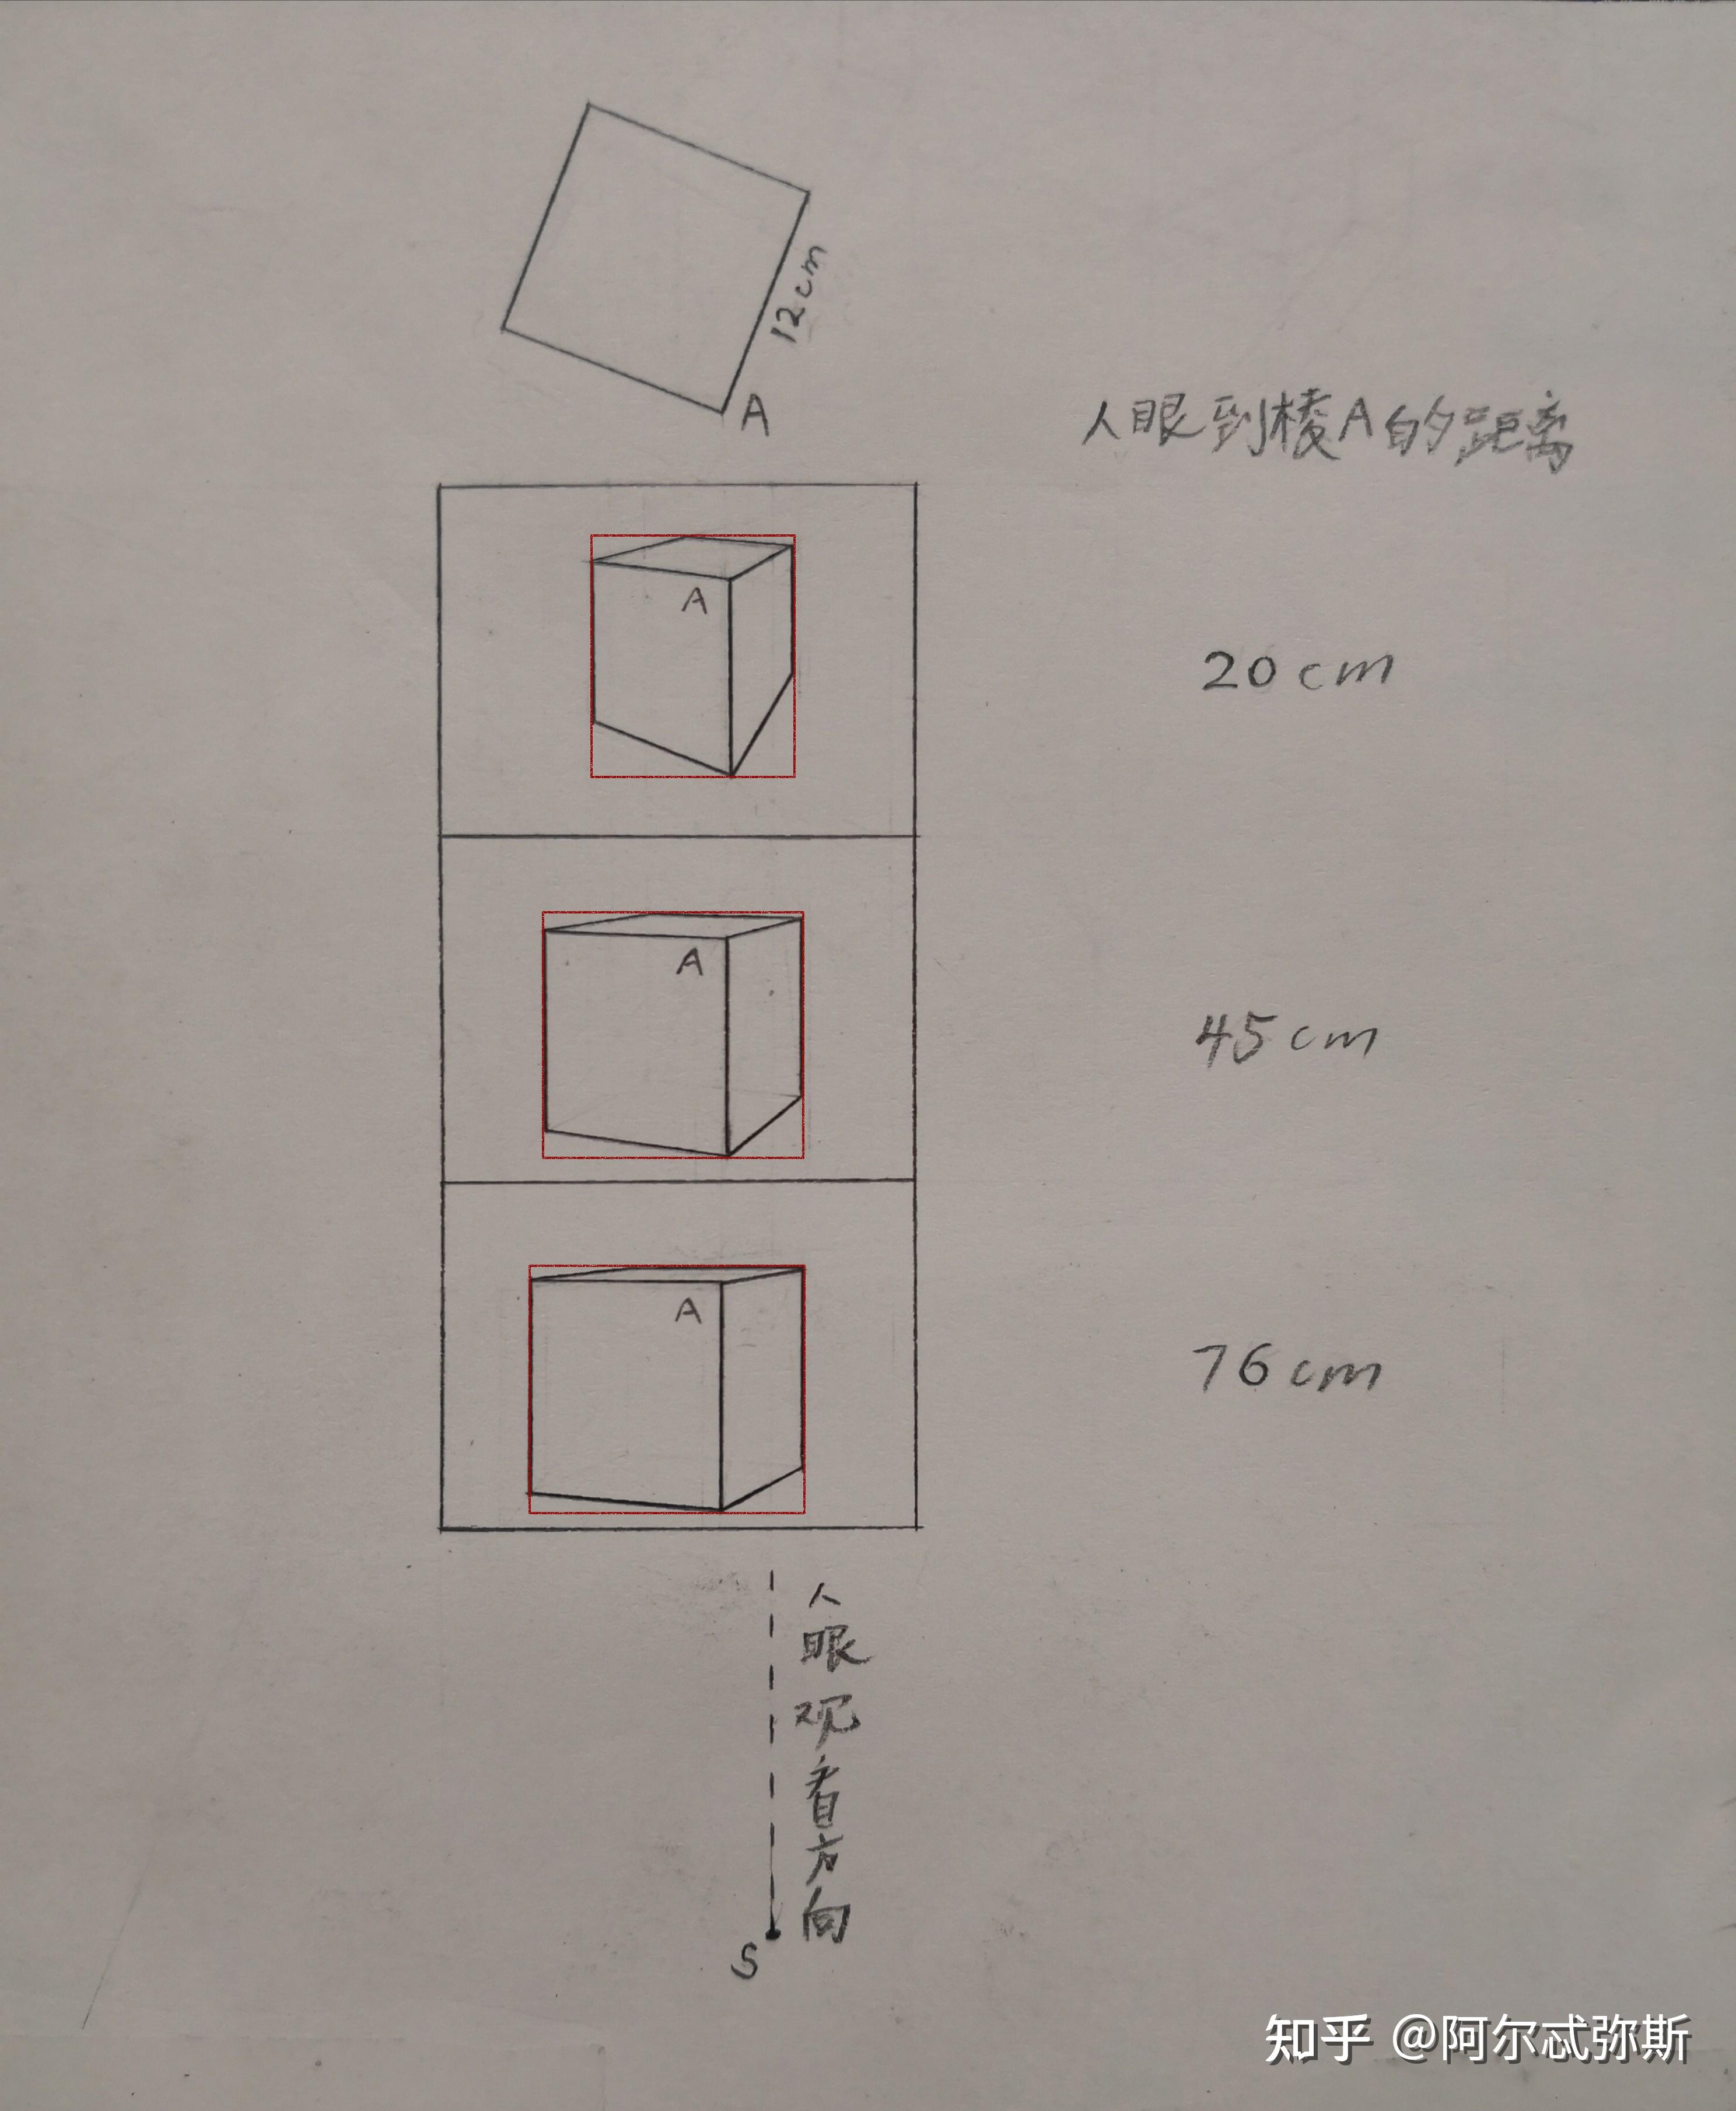 12cm
A
人眼到棱A的距离
A
20cm
A
45cm
A
76cm
人眼观看方向
S
知乎 @阿尔忒弥斯